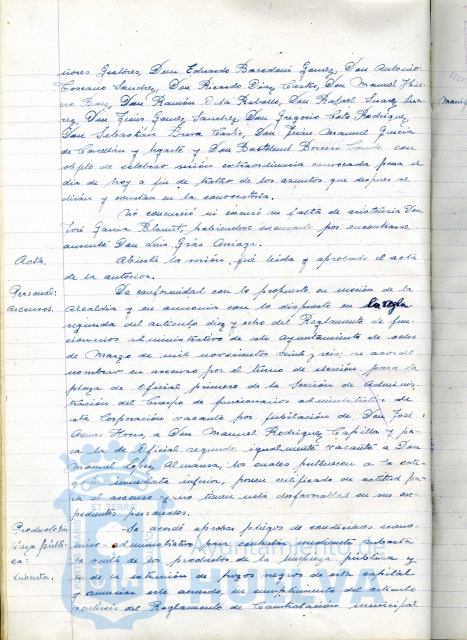 ñores Gestores, Don Eduardo Bacedoni Gomez, Don Antonio
Toscano Sanchez, Don Ricardo Diaz Castro, Don Manuel
Don Ramón de la Don Rafael Suarez
Don Jesús Gomez Sanchez, Don Gregorio Coto Rodriguez,
Don Sebastián Castro, Don Juan Manuel Garcia
de y Ugarte y Don Borrero con
objeto de celebrar sesión extraordinaria convocada para el
dia de hoy a fin de tratar de los asuntos que despues se
dirán y constan en la convocatoria.
No concurrió ni excusó su falta de asistencia Don
José Garcia habiendose excusado por encontrarse
ausente Don Luis
Acta.
Abierta la sesión, fué leida y aprobada el acta
de la anterior.
Personal:
ascensos.
De conformidad con lo propuesto en moción de la
Alcaldia y en armonia con lo dispuesto en la regla
segunda del articulo diez y ocho del Reglamento de fun-
cionarios administrativos de este Ayuntamiento de ocho
de Marzo de mil novecientos veinte y seis; se acordó
nombrar en ascenso por el turno de elección, para la
plaza de Oficial primero de la Sección de Adminis-
tración del Cuerpo de funcionarios administrativos de
esta Corporación vacante por jubilación de Don José
a Don Manuel Rodriguez Capilla y pa-
ra la de Oficial segundo igualmente vacante a Don
Manuel Lopez Almansa, los cuales pertenecen a la cate-
goria inmediata inferior, poseen certificado de actitud pa-
ra el ascenso y no tienen nota desfavorable en sus ex-
pedientes personales.
limpieza públi-
ca:
subasta.
Se acordó aprobar pliegos de condiciones econó-
mico-administrativas para contratar mediante subasta
la venta de los productos de la limpieza pública y
de la extracción de pozos negros de esta capital
y anunciar este acuerdo, en cumplimiento del articulo
veintiseis del Reglamento de Contratación municipal
Ayuntamiento de
HUELVA